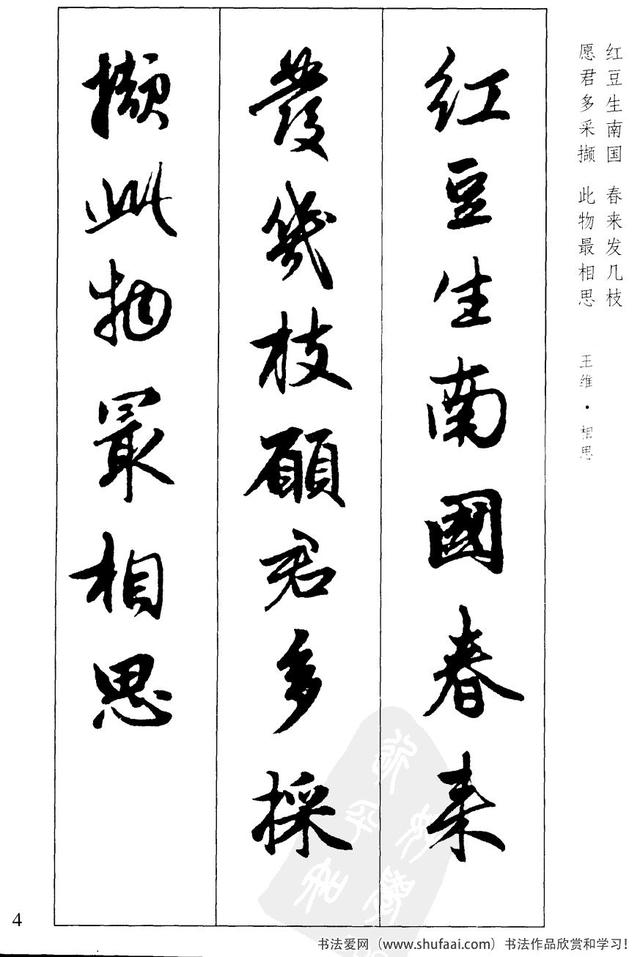 红豆生南国 春来发几枝
愿君多采撷 此物最相思
王维·相思
红豆生南國春来
發幾枝願君多採
撷此物最相思
4
书法爱网（www.shufaai.com）书法作品欣赏和学习！